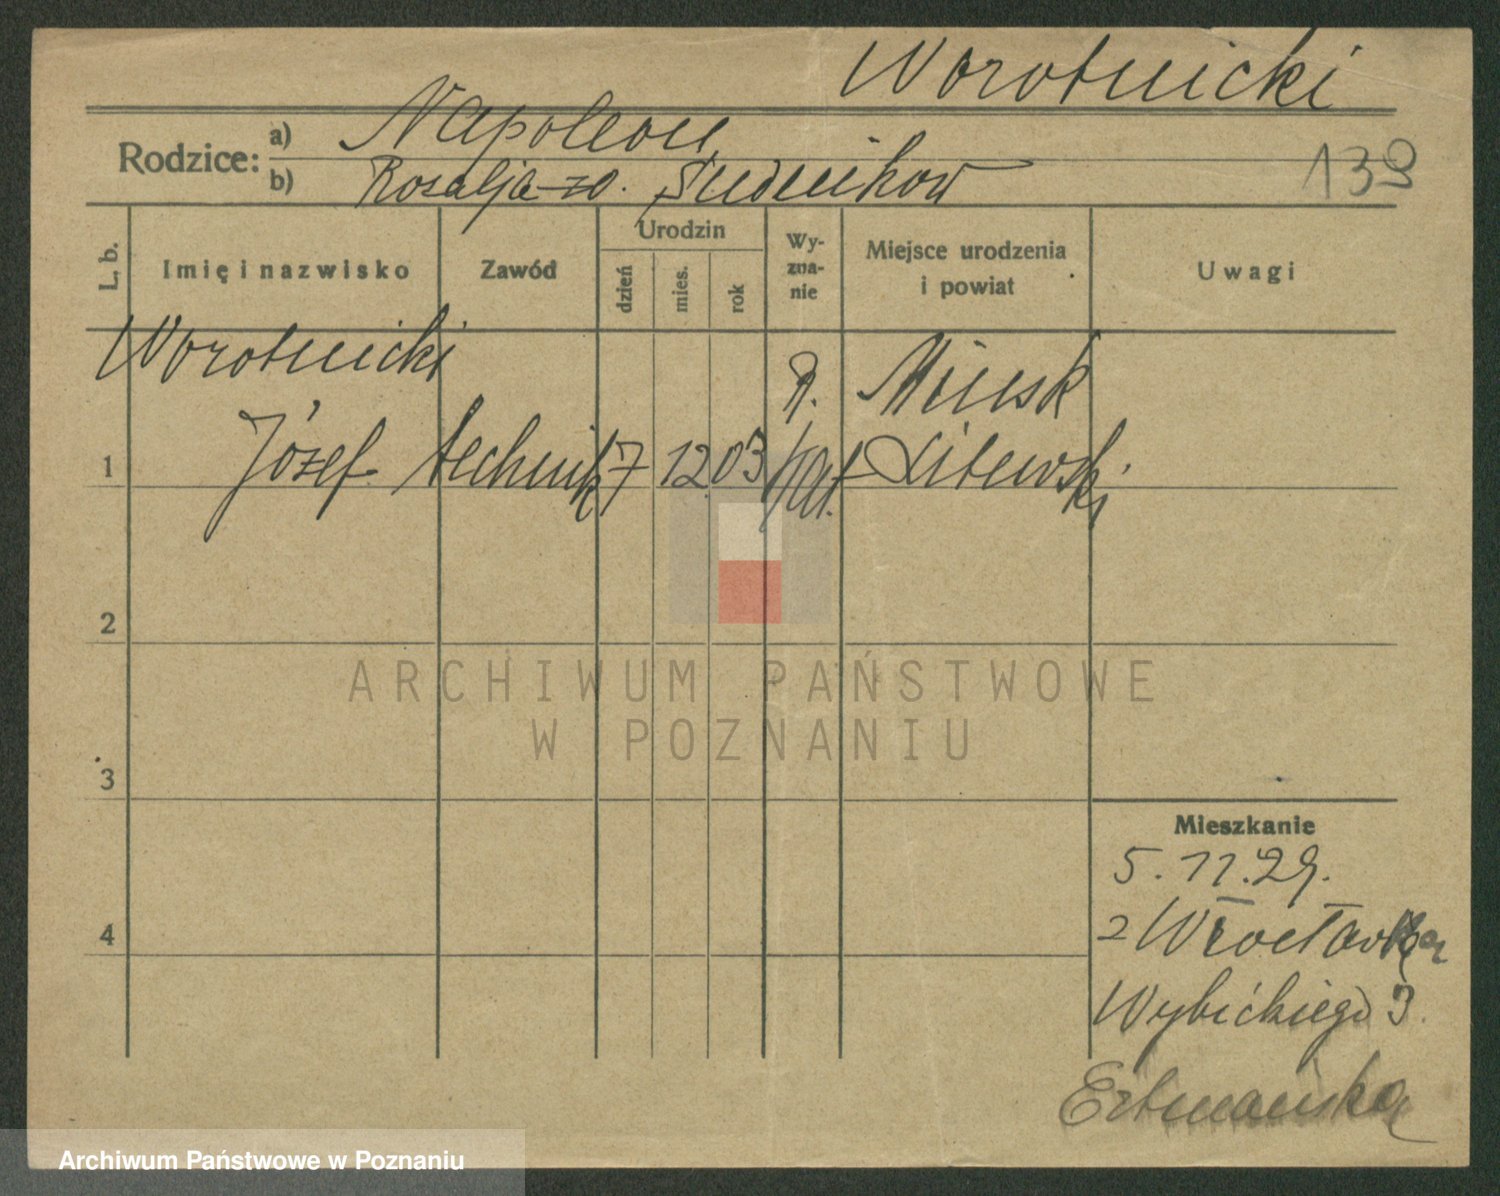 Worotnicki
Rodzice: a) Napoleon
b) Rozalja zo. Sudników
139
L. b.
Imię i nazwisko
Zawód
Urodzin
dzień
mies.
rok
Wy-
zna-
nie
Miejsce urodzenia
i powiat
Uwagi
Worotnicki
R. Mińsk
1 Józef technik 7 12 03 kat. Litewski
2
3
4
ARCHIWUM PAŃSTWOWE
W POZNANIU
Mieszkanie
5.11.29.
Wybickiego 3.
Archiwum Państwowe w Poznaniu